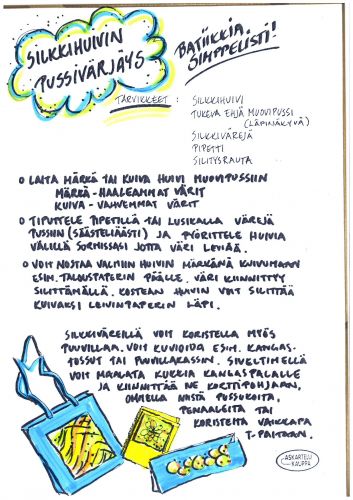 SILKKIHUIVIN
PUSSIVÄRJÄYS
BATIIKKIA
SIMPPELISTI!
TARVIKKEET : SILKKIHUIVI
TUKEVA EHJÄ MUOVIPUSSI
(LÄPINÄKYVÄ)
SILKKIVÄREJÄ
PIPETTI
SILITYSRAUTA
o LAITA MÄRKÄ TAI KUIVA HUIVI MUOVIPUSSIIN
MÄRKÄ - HAALEAMMAT VÄRIT
KUIVA - VAHVEMMAT VÄRIT
o TIPUTTELE PIPETILLÄ TAI LUSIKALLA VÄREJÄ
PUSSIIN (SÄÄSTELIÄÄSTI) JA PYÖRITTELE HUIVIA
VÄLILLÄ SORMISSASI JOTTA VÄRI LEVIÄÄ.
o VOIT NOSTAA VALMIIN HUIVIN MÄRKÄNÄ KUIVUMAAN
ESIM. TALOUSPAPERIN PÄÄLLE. VÄRI KIINNITTYY
SILITTÄMÄLLÄ. KOSTEAN HUIVIN VOIT SILITTÄÄ
KUIVAKSI LEIVINPAPERIN LÄPI.
SILKKIVÄREILLÄ VOIT KORISTELLA MYÖS
PUUVILLAA. VOIT KUVIOIDA ESIM. KANGAS-
TOSSUT TAI PUUVILLAKASSIN. SIVELTIMELLÄ
VOIT MAALATA KUKKIA KANGASPALALLE
JA KIINNITTÄÄ NE KORTTIPOHJAAN,
OMMELLA NIISTÄ PUSSUKOITA,
PENAALEITA TAI
KORISTEITA VAIKKAPA
T-PAITAAN.
ASKARTELU
KAUPPA